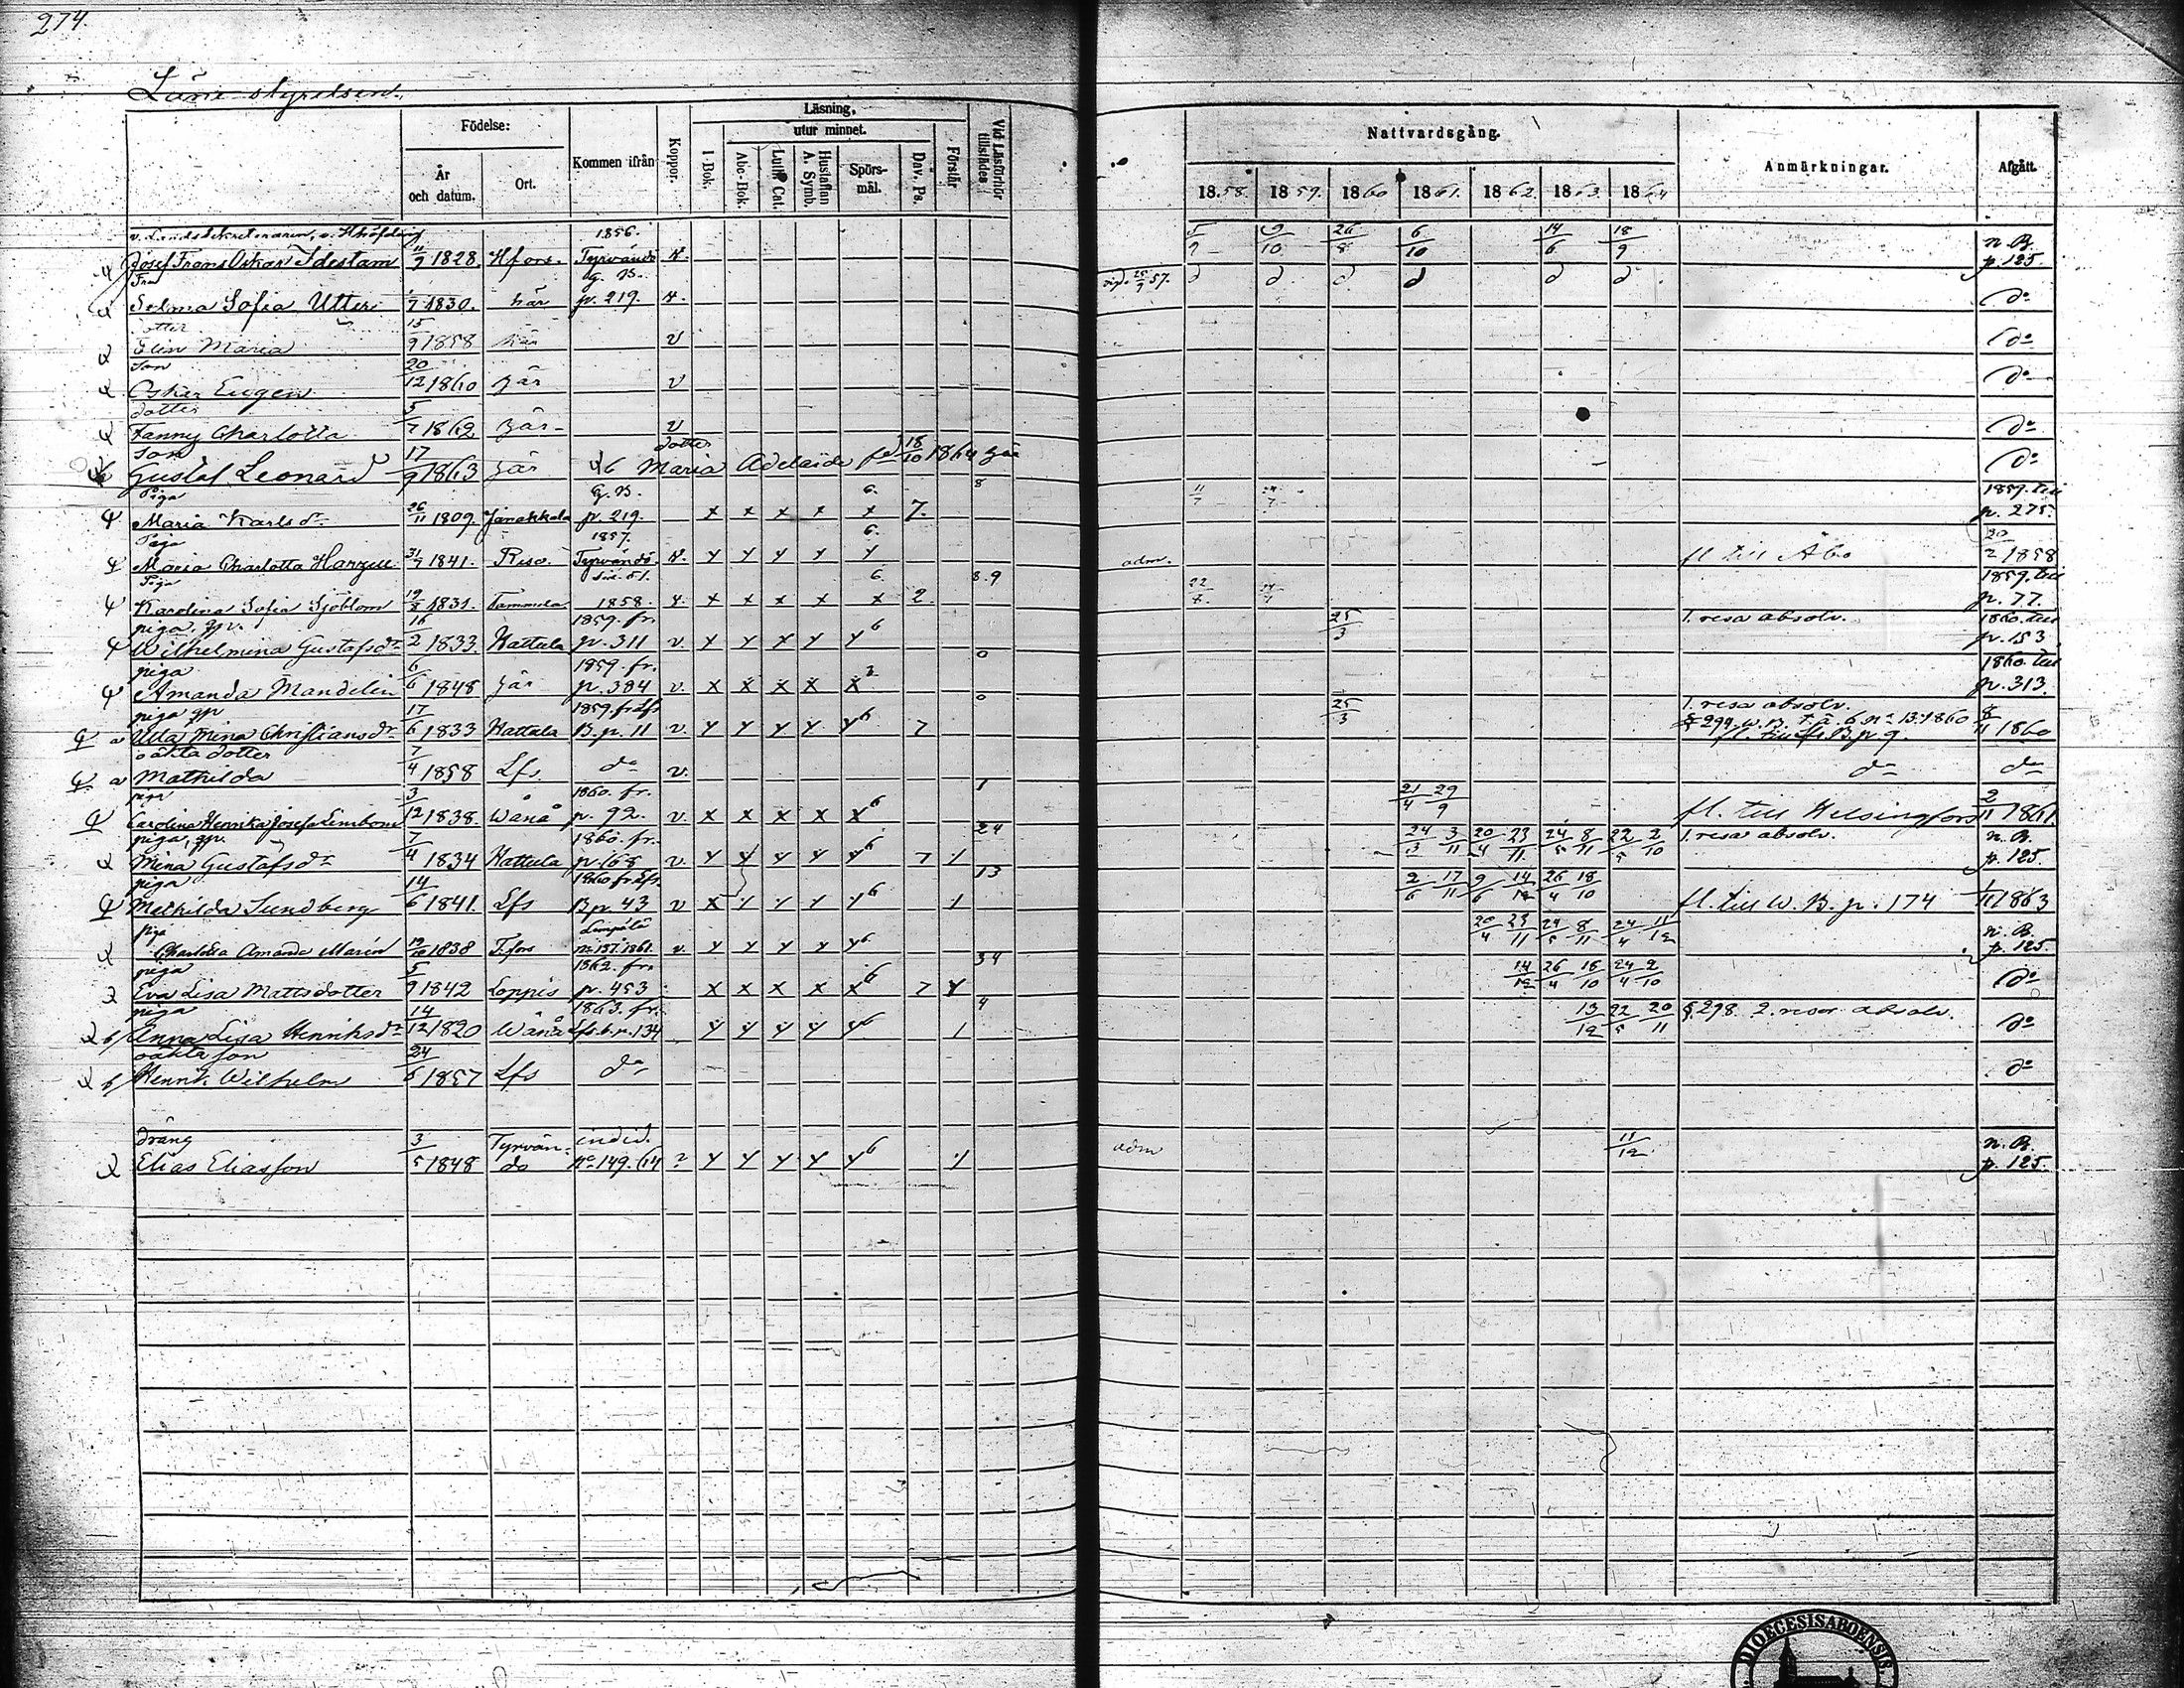 274.
Läne styrelsen.
Födelse:
År och datum.
Ort.
Kommen ifrån
Koppor.
Läsning,
I Bok.
utur minnet.
Abc-Bok.
Luth. Cat.
Hustaflan A. Symb.
Spörsmål.
Dav. Ps.
Förstår
Vid Läsförhör tillstädes
Nattvardsgång.
1858. 1859. 1860 1861. 1862. 1863. 1864
Anmärkningar.
Afgått.
v. Landssekreteraren, v. Häradshöfding 1856.
Josef Frans Oskar Idestam 11/9 1828. Hfors. Tyrvändö 9/10 26/8 6/10 14/6 18/9 n. B. p. 125.
Fru G. B.
Selma Sofia Utter 1830. här p. 219. d d d d d d do
dotter
Elin Maria 15/9 1858 här v do
Son
Oskar Eugen 20/12 1860 här v do
dotter
Fanny Charlotta 5/7 1862 här v do
Son dotter
Gustaf Leonard 17/9 1863 här Maria Adelaide född 18/10 1864 här do
Piga G. B. 6. 8
Maria Karlsdr. 26/11 1809. Janakkala p. 219. x x x x x 7. 11/7 1859. till p. 275.
Piga 1857. 6.
Maria Charlotta 31/7 1841. Reso. Tyrvändö. y y y y y adm. fl. till Åbo 20/2 1858
Piga sid. 51. 6. 8.9
Karolina Sofia Sjöblom 1831. Tammela 1858. x x x x x 2. 22/7 1859. till p. 77.
piga, qv. 1859. fr.
Wilhelmina Gustafsdr 16/2 1833. Hattula p. 311 v. x x x y y 6 25/3 1. resa absolv. 1860. till p. 153
piga 1859. fr. 0
Amanda Mandelin 6/6 1848 här p. 304 v. x x x x x 1860. till p. 313.
piga qv 1859. fr. Lfs 0
Ulla Mina Christiansdr 17/6 1833 Hattula B. p. 11 v. y y y y y 6 7 25/3 1. resa absolv. § 299. w. B. f. å. 6. no 13. 1860 fl. till Lfs. B. p. 9. 11 1860
oäkta dotter
Mathilda 7/4 1858 Lfs do v. do do
piga 1860. fr. 1
Carolina Henrika Josefa Limbom 3/12 1838. Wånå p. 92. v. x x x x x 6 21/4 29/9 fl. till Helsingfors 2/11 1861.
piga, qv. 1860. fr. 24
Mina Gustafsdr 7/4 1834 Hattula p. 168 v. y y y y y 6 7 / 24/3 3/11 20/4 23/11 24/5 8/11 22/5 2/10 1. resa absolv. n. B. p. 125.
piga 1860 fr. Lfs. 13
Mathilda Sundberg 14/6 1841. Lfs B. p. 43 v x y y y y 6 / 2/6 17/11 9/6 14/12 26/4 18/10 fl. till W. B. p. 174 1/11 1863
piga Lempälä
Charlotta Amanda Marin 19/10 1838 T.fors no 157. 1861. v. y y y y y 6 20/4 23/11 24/5 8/11 24/4 11/12 n. B. p. 125.
piga 1862. fr. 34
Eva Lisa Mattsdotter 5/9 1842 Loppis p. 453 x x x x x 6 7 y 14/12 26/4 18/10 24/4 2/10 do
piga 1863. fr. 4
Anna Lisa Henriksdr 14/12 1820 Wånå Lfs. b. p. 134 y y y y y 6 / 13/12 22/5 20/11 § 298. 2. resor absolv. do
oäkta son
Henrik Wilhelm 24/6 1857 Lfs do do
dräng indid.
Elias Eliasson 3/5 1848 Tyrvändö no 149. 64 ? y y y y y 6 / adm 11/12 n. B. p. 125.
DIOECESIS ABOENSIS